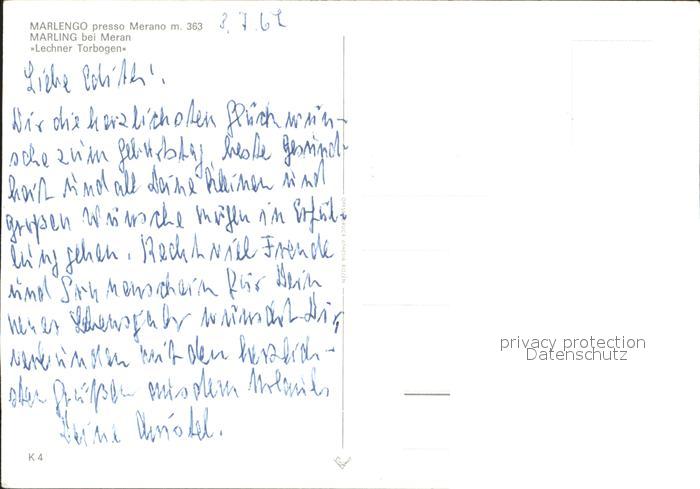 MARLENGO presso Merano m. 363
MARLING bei Meran
»Lechner Torbogen«
3.7.62
Liebe Edith!
Dir die herzlichsten Glückwün-
sche zum Geburtstag, beste Gesund-
heit und all Deine kleinen und
großen Wünsche mögen in Erfül-
lung gehen. Recht viel Freude
und Sonnenschein für Dein
neues Lebensjahr wünscht Dir,
verbunden mit den herzlich-
sten Grüßen aus dem Urlaub
Deine
K 4
privacy protection
Datenschutz